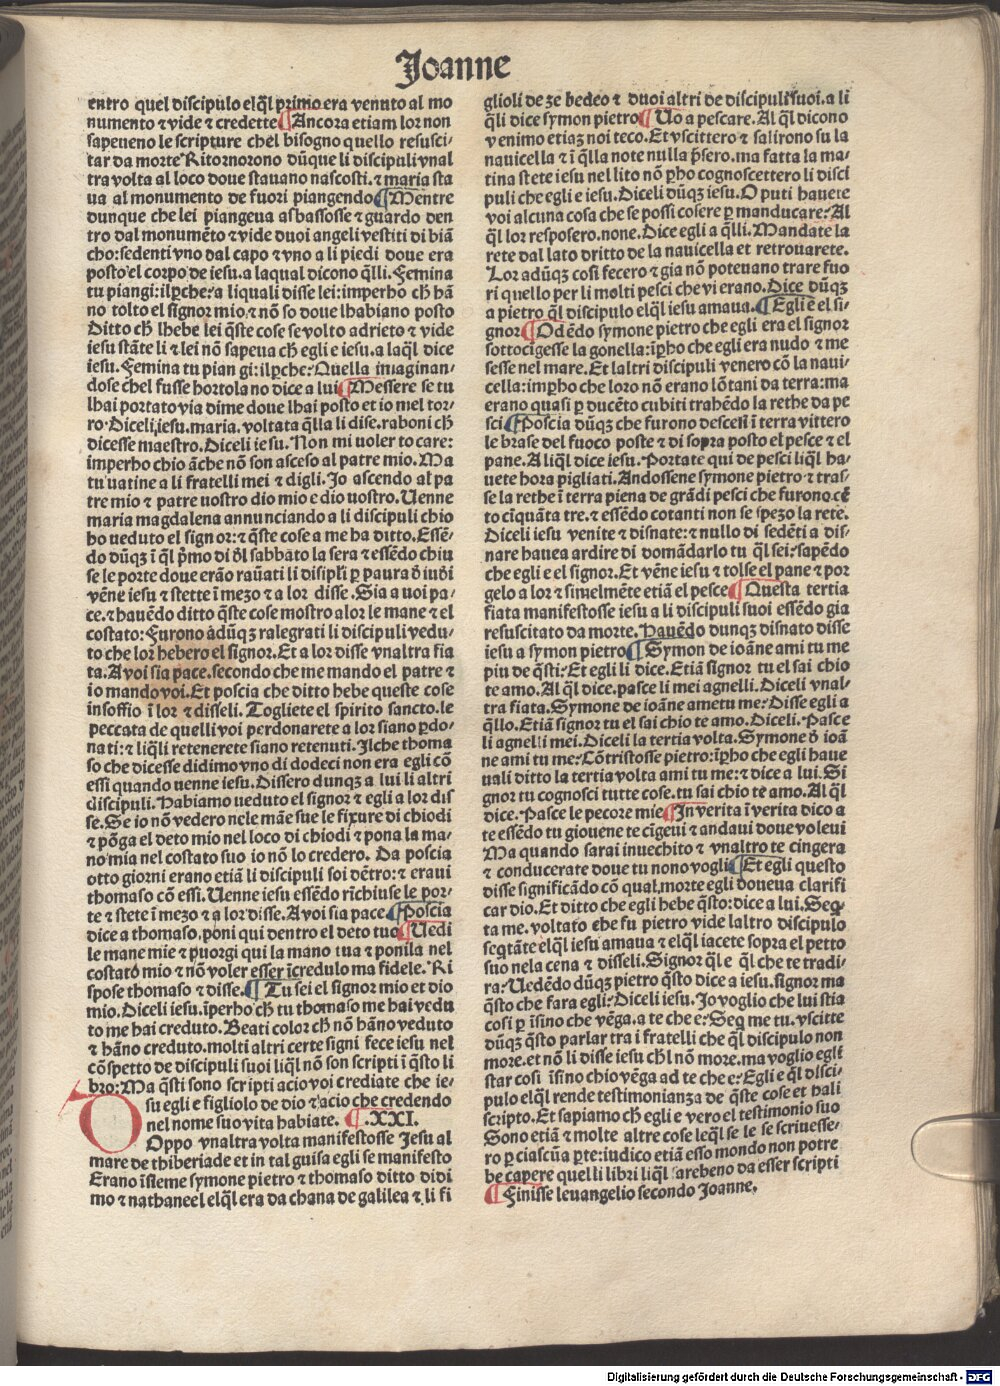 Joanne
entro quel discipulo elq̃l primo era venuto al mo
numento ⁊ vide ⁊ credette ¶ Ancora etiam lor non
sapeueno le scripture chel bisogno quello resusci⸗
tar da morte Ritornorono dũque li discipuli vnal
tra volta al loco doue stauano nascosti. ⁊ maria sta
ua al monumento de fuori piangendo ¶ Mentre
dunque che lei piangeua asbassosse ⁊ guardo den
tro dal monumẽto ⁊ vide duoi angeli vestiti di biã
cho: sedenti vno dal capo ⁊ vno a li piedi doue era
posto el corpo de iesu. a laqual dicono q̃lli. Femina
tu piangi: ilp̱che: a liquali disse lei: imperho ch̃ hã
no tolto el signor mio. ⁊ nõ so doue lhabiano posto
Ditto ch̃ lhebe lei q̃ste cose se volto adrieto ⁊ vide
iesu stãte li ⁊ lei nõ sapeua ch̃ egli e iesu. a laq̃l dice
iesu. Femina tu pian gi: ilp̱che: Quella imaginan⸗
dose chel fusse hortola no dice a lui ¶ Messere se tu
lhai portato via dime doue lhai posto et io mel tor⸗
ro. Diceli iesu. maria. voltata q̃lla li dise. raboni ch̃
dicesse maestro. Diceli iesu. Non mi uoler to care:
imperho chio ãche nõ son asceso al patre mio. Ma
tu uatine a li fratelli mei ⁊ digli. Jo ascendo al pa
tre mio ⁊ patre uostro dio mio e dio uostro. Uenne
maria magdalena annunciando a li discipuli chio
ho ueduto el signor: ⁊ q̃ste cose a me ha ditto. Essẽ⸗
do dũq̃ i q̃l p̃mo di dl̃ sabbato la sera ⁊ essẽdo chiu
se le porte doue erão raũati li disipl̃i p̱ paura d̃ iud̃i
vẽne iesu ⁊ stette ĩ mezo ⁊ a lor disse. Sia a uoi pa⸗
ce. ⁊ hauẽdo ditto q̃ste cose mostro alor le mane ⁊ el
costato: Furono adũq̃ ralegrati li discipuli vedu⸗
to che lor hebero el signor. Et a lor disse vnaltra fia
ta. A voi sia pace. secondo che me mando el patre ⁊
io mando voi. Et poscia che ditto hebe queste cose
insoffio ĩ lor ⁊ disseli. Togliete el spirito sancto. le
peccata de quelli voi perdonarete a lor siano p̱do⸗
na ti: ⁊ liq̃li retenerete siano retenuti. Ilche thoma
so che dicesse didimo vno di dodeci non era egli cõ
essi quando uenne iesu. Dissero dunq̃ a lui li altri
discipuli. Habiamo ueduto el signor ⁊ egli a lor dis
se. Se io nõ vedero nele mãe sue le fixure di chiodi
⁊ põga el deto mio nel loco di chiodi ⁊ pona la ma⸗
no mia nel costato suo io nõ lo credero. Da poscia
otto giorni erano etiã li discipuli soi dẽtro: ⁊ eraui
thomaso cõ essi. Uenne iesu essẽdo rĩchiuse le por⸗
te ⁊ stete ĩ mezo ⁊ a lor disse. A voi sia pace. ¶ Poscia
dice a thomaso, poni qui dentro el deto tuo ¶ Uedi
le mane mie ⁊ p̱uorgi qui la mano tua ⁊ ponila nel
costato mio ⁊ nõ voler esser ĩcredulo ma fidele. Ri
spose thomaso ⁊ disse. ¶ Tu sei el signor mio et dio
mio. Diceli iesu. ĩperho ch̃ tu thomaso me hai vedu
to me hai creduto. Beati color ch̃ nõ hãno veduto
⁊ hãno creduto. molti altri certe signi fece iesu nel
cõspetto de discipuli suoi liq̃l nõ son scripti ĩ q̃sto li
bro: Ma q̃sti sono scripti acio voi crediate che ie⸗
su egli e figliolo de dio ⁊ acio che credendo
nel nome suo vita habiate. ¶ .XXI.
DOppo vnaltra volta manifestosse Jesu al
mare de thiberiade et in tal guisa egli se manifesto
Erano ĩsieme symone pietro ⁊ thomaso ditto didi
mo ⁊ nathaneel elq̃l era da chana de galilea ⁊ li fi
glioli de ze bedeo ⁊ duoi altri de discipuli suoi. a li
q̃li dice symon pietro ¶ Uo a pescare. Al q̃l dicono
venimo etiaz noi teco. Et vscittero ⁊ salirono su la
nauicella ⁊ ĩ q̃lla note nulla p̃sero. ma fatta la ma⸗
tina stete iesu nel lito nõ p̱ho cognoscettero li disci
puli che egli e iesu. Diceli dũq̃ iesu. O puti hauete
voi alcuna cosa che se possi cosere p̱ manducare: Al
q̃l lor resposero. none. Dice egli a q̃lli. Mandate la
rete dal lato dritto de la nauicella et retrouarete.
Lor adũq̃ cosi fecero ⁊ gia nõ poteuano trare fuo
ri quello per li molti pesci che vi erano. Dice dũq̃
a pietro q̃l discipulo elq̃l iesu amaua. ¶ Egli e el si⸗
gnor ¶ Odẽdo symone pietro che egli era el signor
sottocigesse la gonella: ĩp̱ho che egli era nudo ⁊ me
sesse nel mare. Et laltri discipuli venero cõ la naui⸗
cella: imp̱ho che loro nõ erano lõtani da terra: ma
erano quasi p̱ ducẽto cubiti trahẽdo la rethe da pe
sci ¶ Poscia dũq̃ che furono descesi ĩ terra vittero
le brase del fuoco poste ⁊ di sopra posto el pesce ⁊ el
pane. A liq̃l dice iesu. Portate qui de pesci liq̃l ha⸗
uete hora pigliati. Andossene symone pietro ⁊ tras⸗
se la rethe ĩ terra piena de grãdi pesci che furono. cẽ
to cĩquãta tre. ⁊ essẽdo cotanti non se spezo la rete.
Diceli iesu venite ⁊ disnate: ⁊ nullo di sedẽti a dis⸗
nare hauea ardire di domãdarlo tu q̃l sei: sapẽdo
che egli e el signor. Et vẽne iesu ⁊ tolse el pane ⁊ por
gelo a lor ⁊ simelmẽte etiã el pesce ¶ Questa tertia
fiata manifestosse iesu a li discipuli suoi essẽdo gia
resuscitato da morte. Hauẽdo dunq̃ disnato disse
iesu a symon pietro ¶ Symon de ioãne ami tu me
piu de q̃sti: Et egli li dice. Etiã signor tu el sai chio
te amo. Al q̃l dice. pasce li mei agnelli. Diceli vnal⸗
tra fiata. Symone de ioãne ametu me: Disse egli a
q̃llo. Etiã signor tu el sai chio te amo. Diceli. Pasce
li agnelli mei. Diceli la tertia volta. Symone d̃ ioã
ne ami tu me: Cõtristosse pietro: ĩp̱ho che egli haue
uali ditto la tertia volta ami tu me: ⁊ dice a lui. Si
gnor tu cognosci tutte cose. tu sai chio te amo. Al q̃l
dice. Pasce le pecore mie ¶ In verita ĩ verita dico a
te essẽdo tu giouene te cĩgeui ⁊ andaui doue voleui
Ma quando sarai inuechito ⁊ vnaltro te cingera
⁊ conducerate doue tu nono vogli ¶ Et egli questo
disse significãdo cõ qual morte egli doueua clarifi
car dio. Et ditto che egli hebe q̃sto: dice a lui. Seq̃
ta me. voltato che fu pietro vide laltro discipulo
seq̃tãte elq̃l iesu amaua ⁊ elq̃l iacete sopra el petto
suo nela cena ⁊ disseli. Signor q̃l e q̃l che te tradi⸗
ra: Uedẽdo dũq̃ pietro q̃sto dice a iesu. signor ma
q̃sto che fara egli: Diceli iesu. Jo voglio che lui stia
cosi p̱ ĩsino che vẽga. a te che e: Seq̃ me tu. vscitte
dũq̃ q̃sto parlar tra i fratelli che q̃l discipulo non
more. et nõ li disse iesu ch̃l nõ more. ma voglio egl̃i
star cosi ĩsino chio vẽga ad te che e: Egli e q̃l disci⸗
pulo elq̃l rende testimonianza de q̃ste cose et hali
scripto. Et sapiamo ch̃ egli e vero el testimonio suo
Sono etiã ⁊ molte altre cose leq̃l se le se scriuesse⸗
ro p̱ ciascũa p̱te: iudico etiã esso mondo non potre
be capere quelli libri liq̃l sarebeno da esser scripti
¶ Finisse leuangelio secondo Joanne.
Digitalisierung gefördert durch die Deutsche Forschungsgemeinschaft - DFG